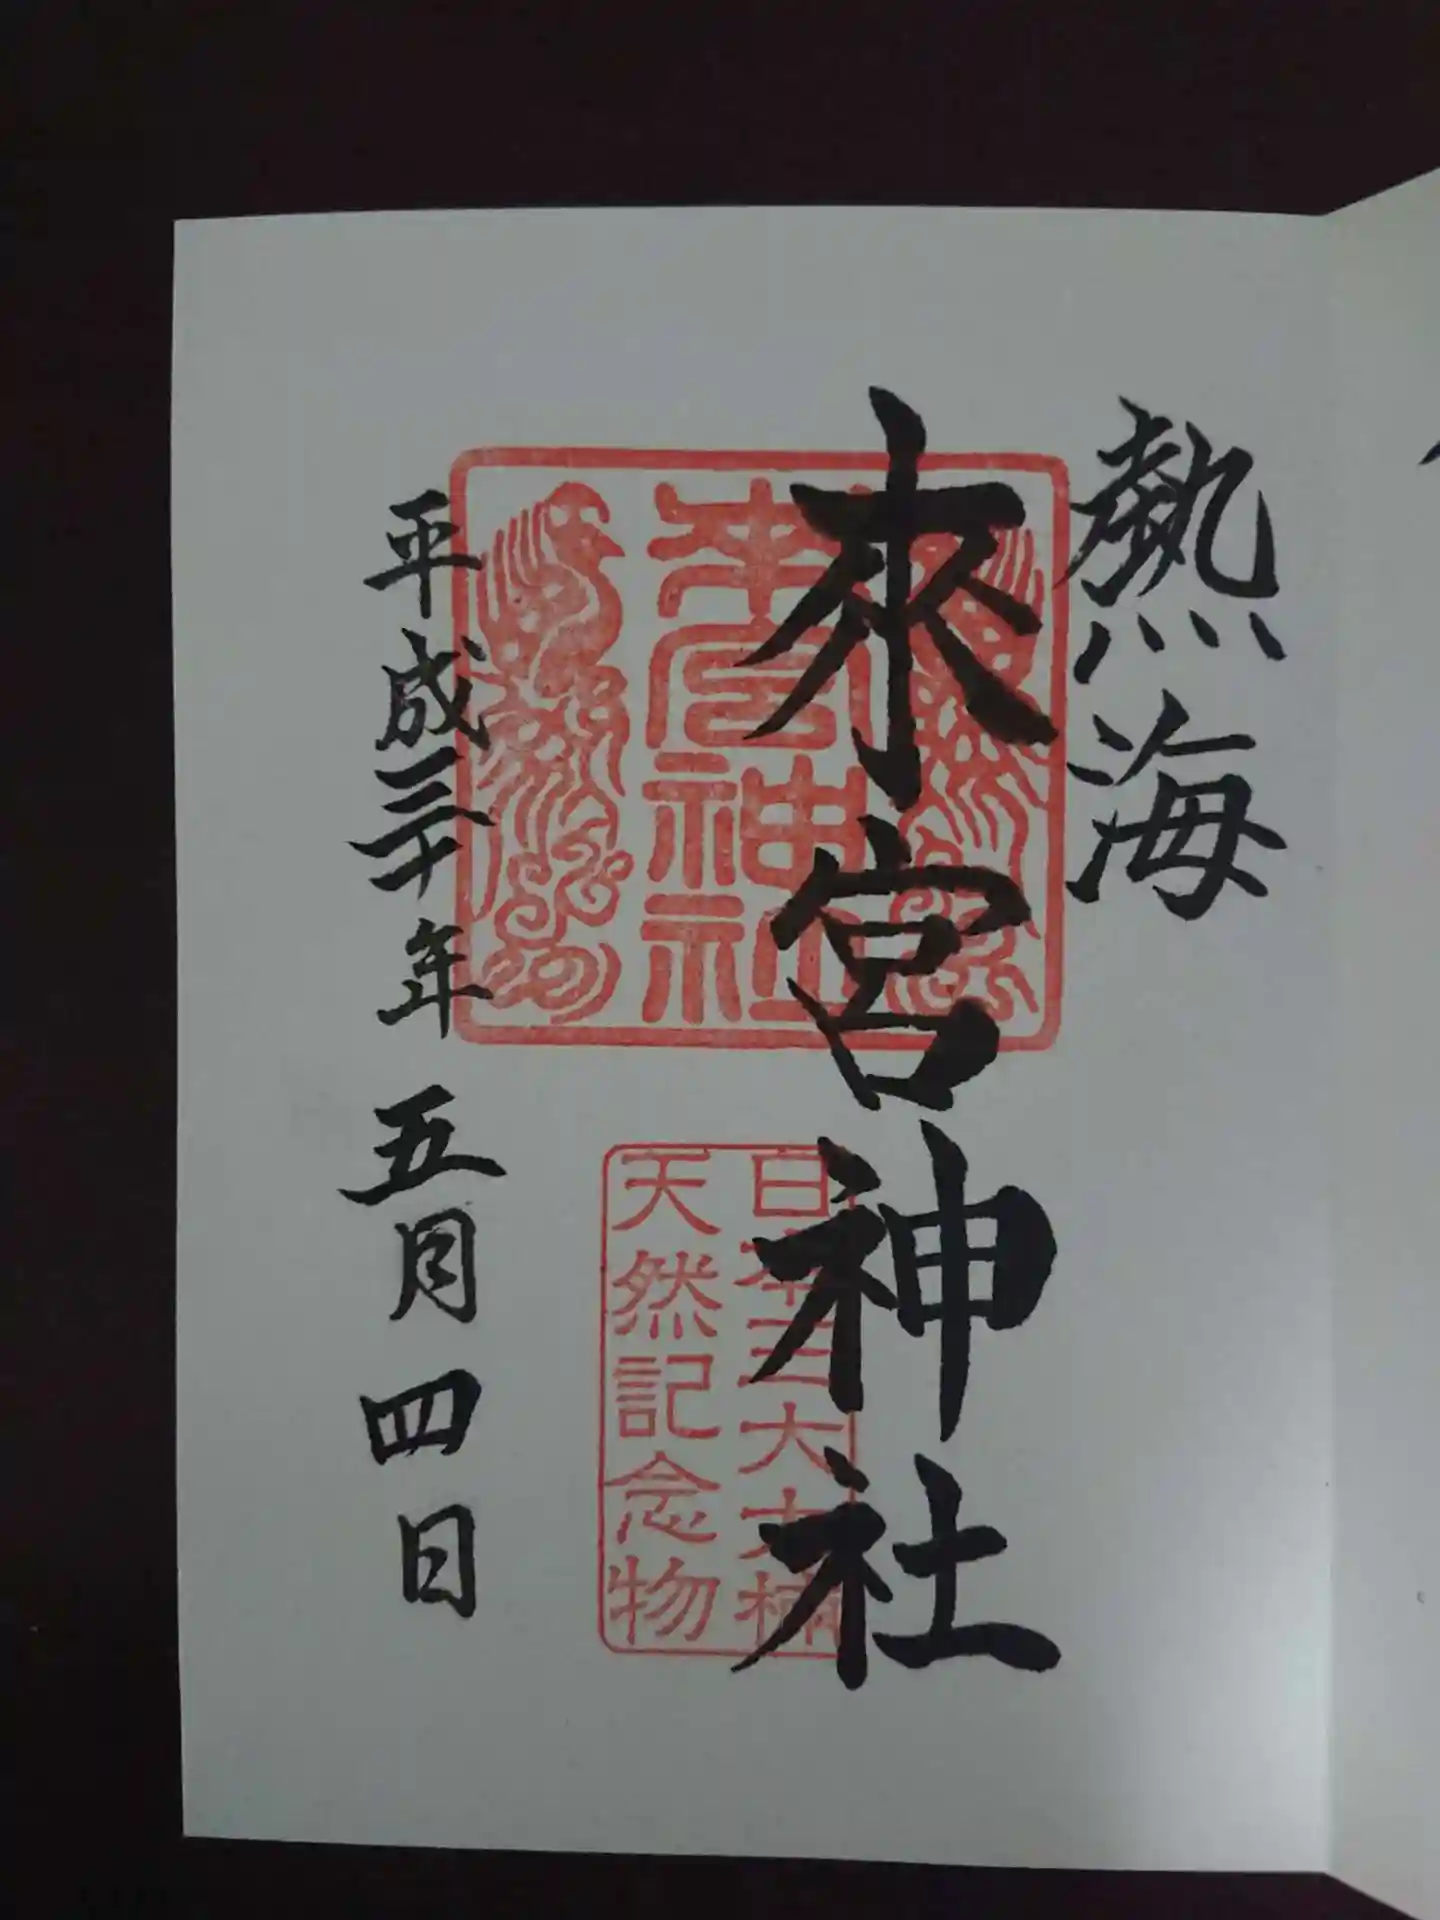 熱海
來宮神社
来宮神社
日本三大大楠
天然記念物
平成三十年 五月 四日